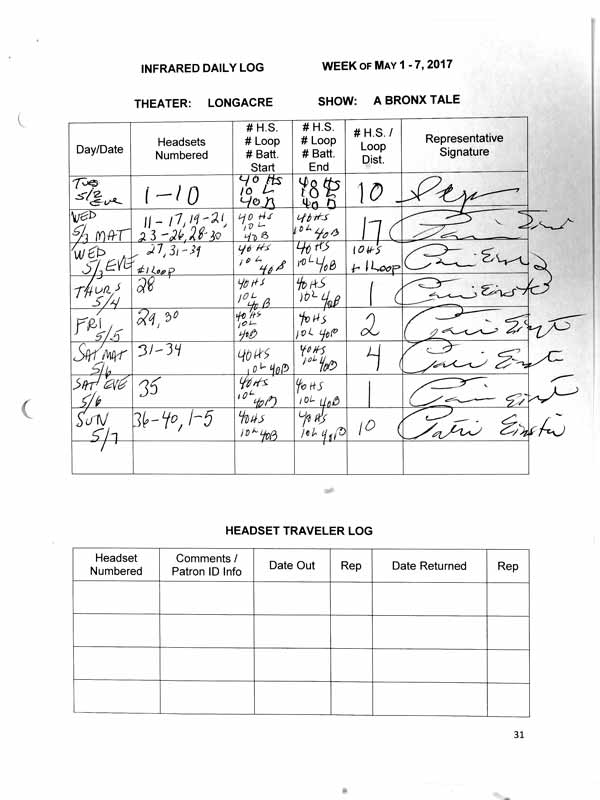 INFRARED DAILY LOG WEEK OF MAY 1 - 7, 2017
THEATER: LONGACRE SHOW: A BRONX TALE
Day/Date Headsets Numbered # H.S. # Loop # Batt. Start # H.S. # Loop # Batt. End # H.S. / Loop Dist. Representative Signature
Tue 5/2 Eve 1-10 40 HS 10 L 40 B 10
WED 5/3 MAT 11-17, 19-21, 23-26, 28-30 40 HS 10 L 40 B 40 HS 10 L 40B 17
WED 5/3 EVE 27, 31-39 #1 Loop 40 HS 10 L 40B 40 HS 10L 40B 10HS + 1 Loop
THURS 5/4 28 40HS 10L 40B 40HS 10L 40B 1
FRI 5/5 29, 30 40HS 10L 40B 40HS 10L 40B 2
SAT MAT 5/6 31-34 40HS 10L 40B 40HS 10L 40B 4
SAT EVE 5/6 35 40HS 10L 40B 40HS 10L 40B 1
SUN 5/7 36-40, 1-5 40HS 10L 40B 40HS 10L 40B 10
HEADSET TRAVELER LOG
Headset Numbered Comments / Patron ID Info Date Out Rep Date Returned Rep
31